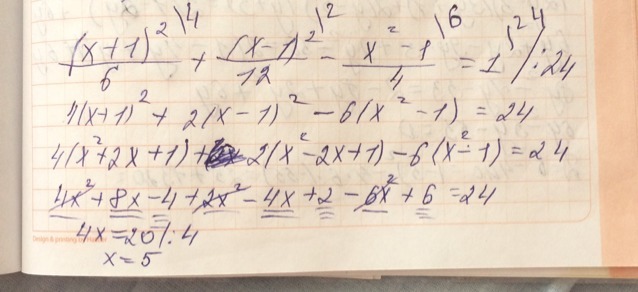 (x+1)²\4 / 6 + (x-1)²\2 / 12 - x²-1\6 / 4 = 1\24 /:24
4(x+1)² + 2(x-1)² - 6(x²-1) = 24
4(x²+2x+1)+2(x²-2x+1)-6(x²-1)=24
4x²+8x-4+2x²-4x+2-6x²+6=24
4x=20/:4
x=5